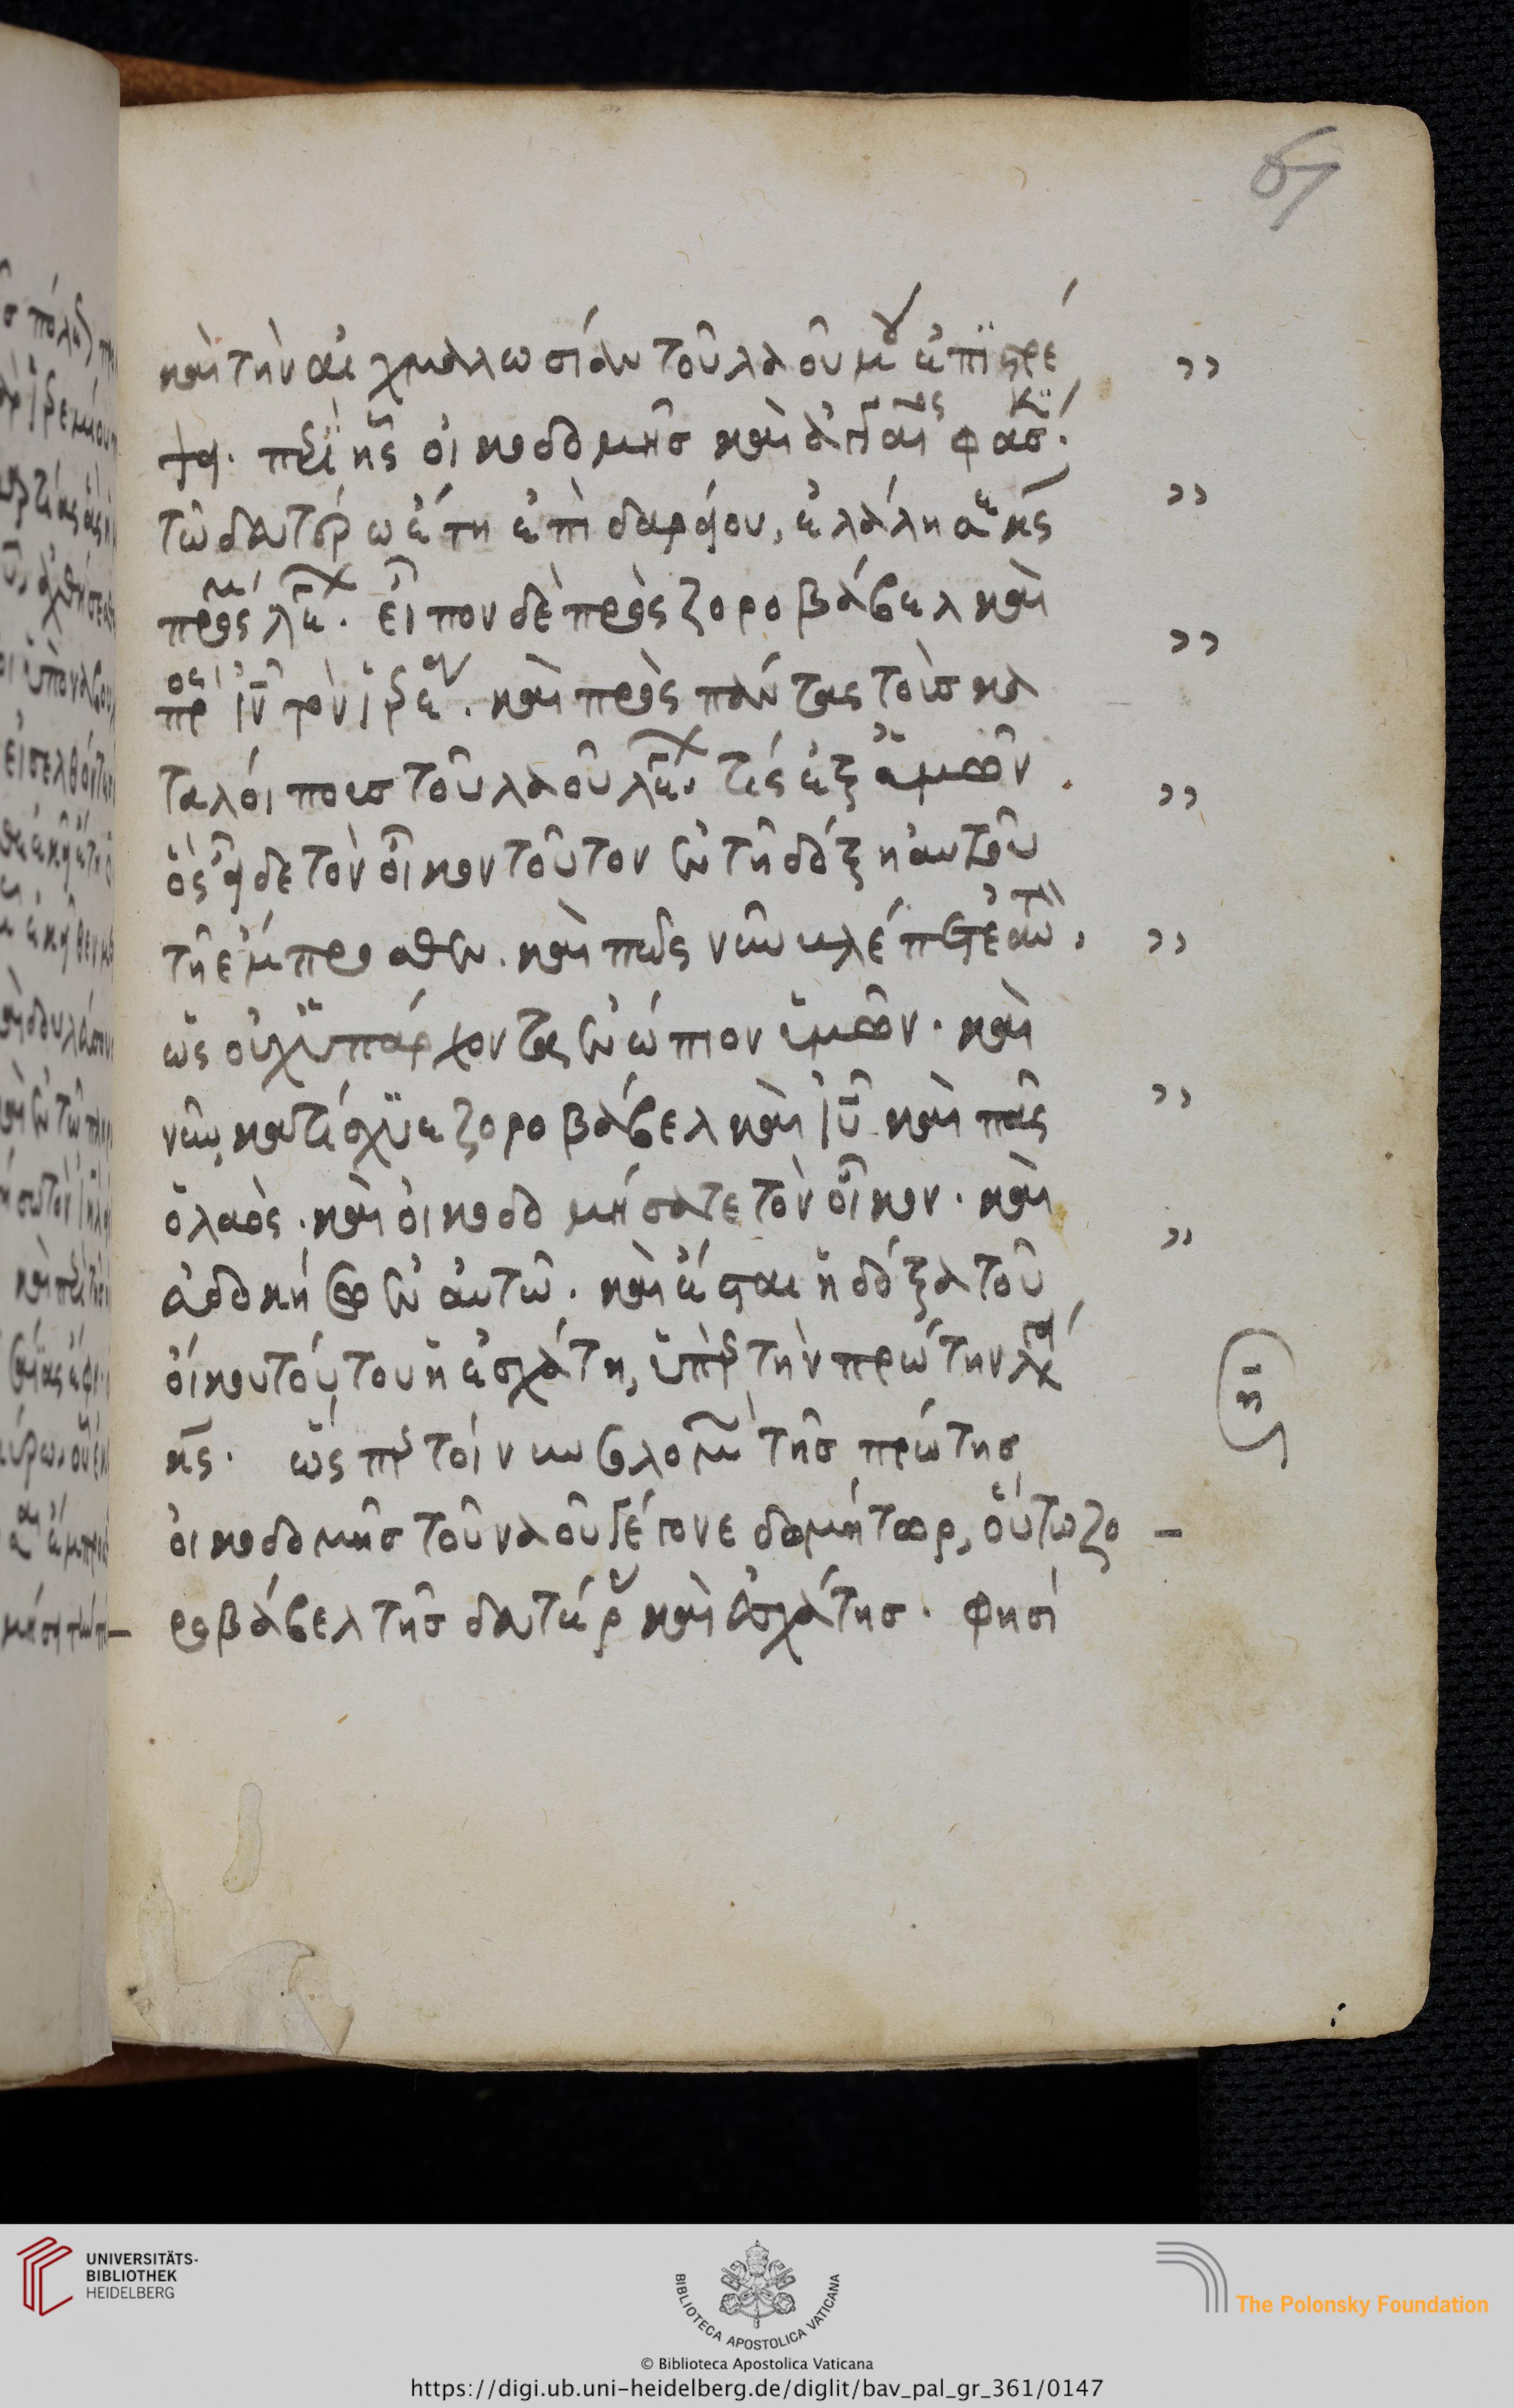 67
καὶ τὴν αἰχμαλωσίαν τοῦ λαοῦ μου ἐπιστρέ
ψει. περὶ ἧς οἰκοδομῆς καὶ
τῶ δευτέρω ἔτη ἐπὶ δαρείου, ἐλάλησε κς
πρὸς λέγων. εἶπον δὲ πρὸς ζοροβάβελ καὶ
πρὸς ιν τὸν ἱερέα. καὶ πρὸς πάντας τοὺς κα
ταλοίπους τοῦ λαοῦ λέγων. τίς ἐξ ὑμῶν
ὃς εἶδε τὸν οἶκον τοῦτον ἐν τῆ δόξη αὐτοῦ
τῆ ἔμπροσθεν. καὶ πῶς νῦν βλέπετε αὐτὸν,
ὡς οὐχ ὑπάρχοντας ἐνώπιον ὑμῶν. καὶ
νῦν κατίσχυε ζοροβάβελ καὶ ιυ καὶ πᾶς
ὁ λαὸς. καὶ οἰκοδομήσατε τὸν οἶκον. καὶ
εὐδοκήσω ἐν αὐτῶ. καὶ ἔσται ἡ δόξα τοῦ
οἴκου τούτου ἡ ἐσχάτη, ὑπὲρ τὴν πρώτην λέγει
κς. ὥσπερ τοίνυν σολομῶν τῆς πρώτης
οἰκοδομῆς τοῦ ναοῦ γέγονε δομήτωρ, οὕτω ζο
ροβάβελ τῆς δευτέρας καὶ ἐσχάτης. φησί
»
»
»
»
»
»
»
UNIVERSITÄTS-
BIBLIOTHEK
HEIDELBERG
BIBLIOTECA APOSTOLICA VATICANA
The Polonsky Foundation
© Biblioteca Apostolica Vaticana
https://digi.ub.uni-heidelberg.de/diglit/bav_pal_gr_361/0147